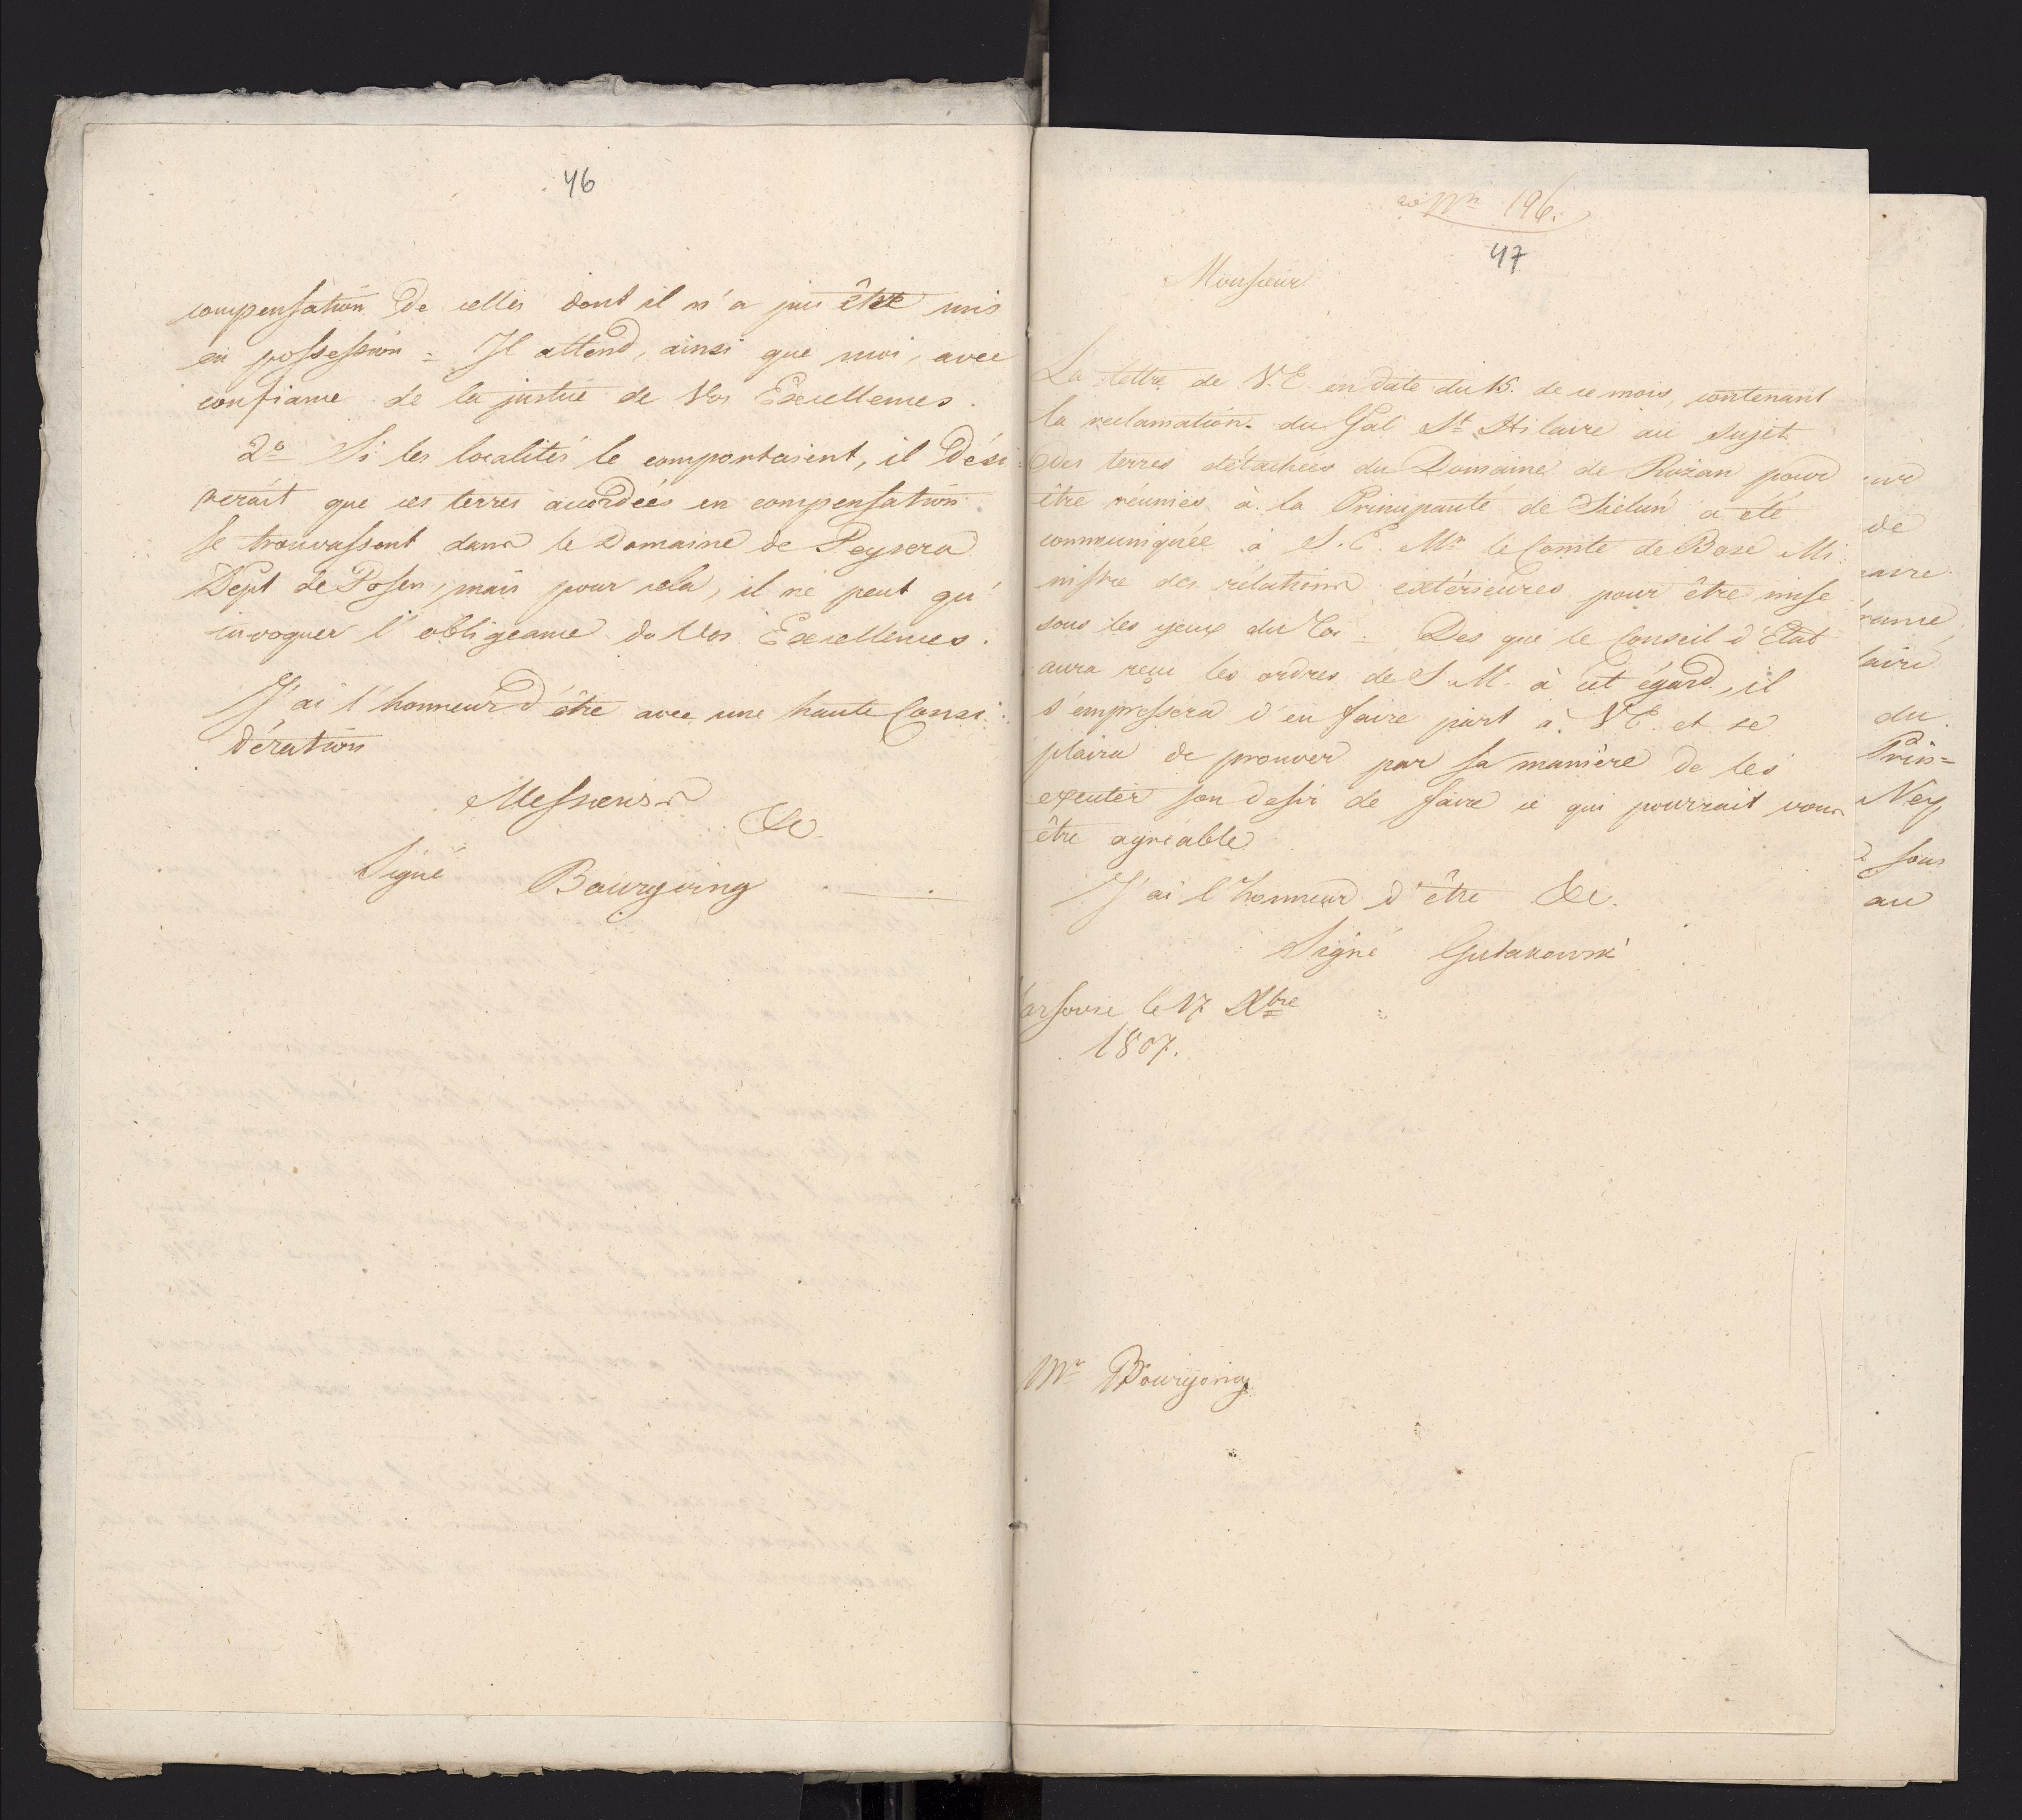 46
compensation de celles dont il n'a pu être mis
en possession = Il attend, ainsi que moi, avec
confiance de la justice de Vos Excellences.
2º Si les localités le comportaient, il dési=
rerait que ces terres accordées en compensation
se trouvassent dans le Domaine de Peysera
Dept de Posen, mais pour cela, il ne peut qu'
invoquer l'obligeance de Vos Excellences.
J'ai l'honneur d'être avec une haute Consi=
dération
Messieurs
&c
Signé Bourgoing
ad Nn 196.
47
Monsieur
La lettre de V.E. en date du 15. de ce mois, contenant
la reclamation du Gal St Hilaire au sujet
des terres détachées du Domaine de Rożan pour
être réunies à la Principauté de Sielun a été
communiquée à S.E. Mr le Comte de Bose Mi=
nistre des rélations extérieures pour être mise
sous les yeux du Roi = Des que le Conseil d'Etat
aura reçu les ordres de S.M. à cet égard, il
s'empressera d'en faire part à V.E. et se
plaira de prouver par sa manière de les
executer son desir de faire ce qui pourrait vous
être agréable
J'ai l'honneur d'être &c.
Signé Gutakowski
arsovie le 17 Xbre
1807.
Mr Bourgoing
de
du
Prin=
Ney
sous
au